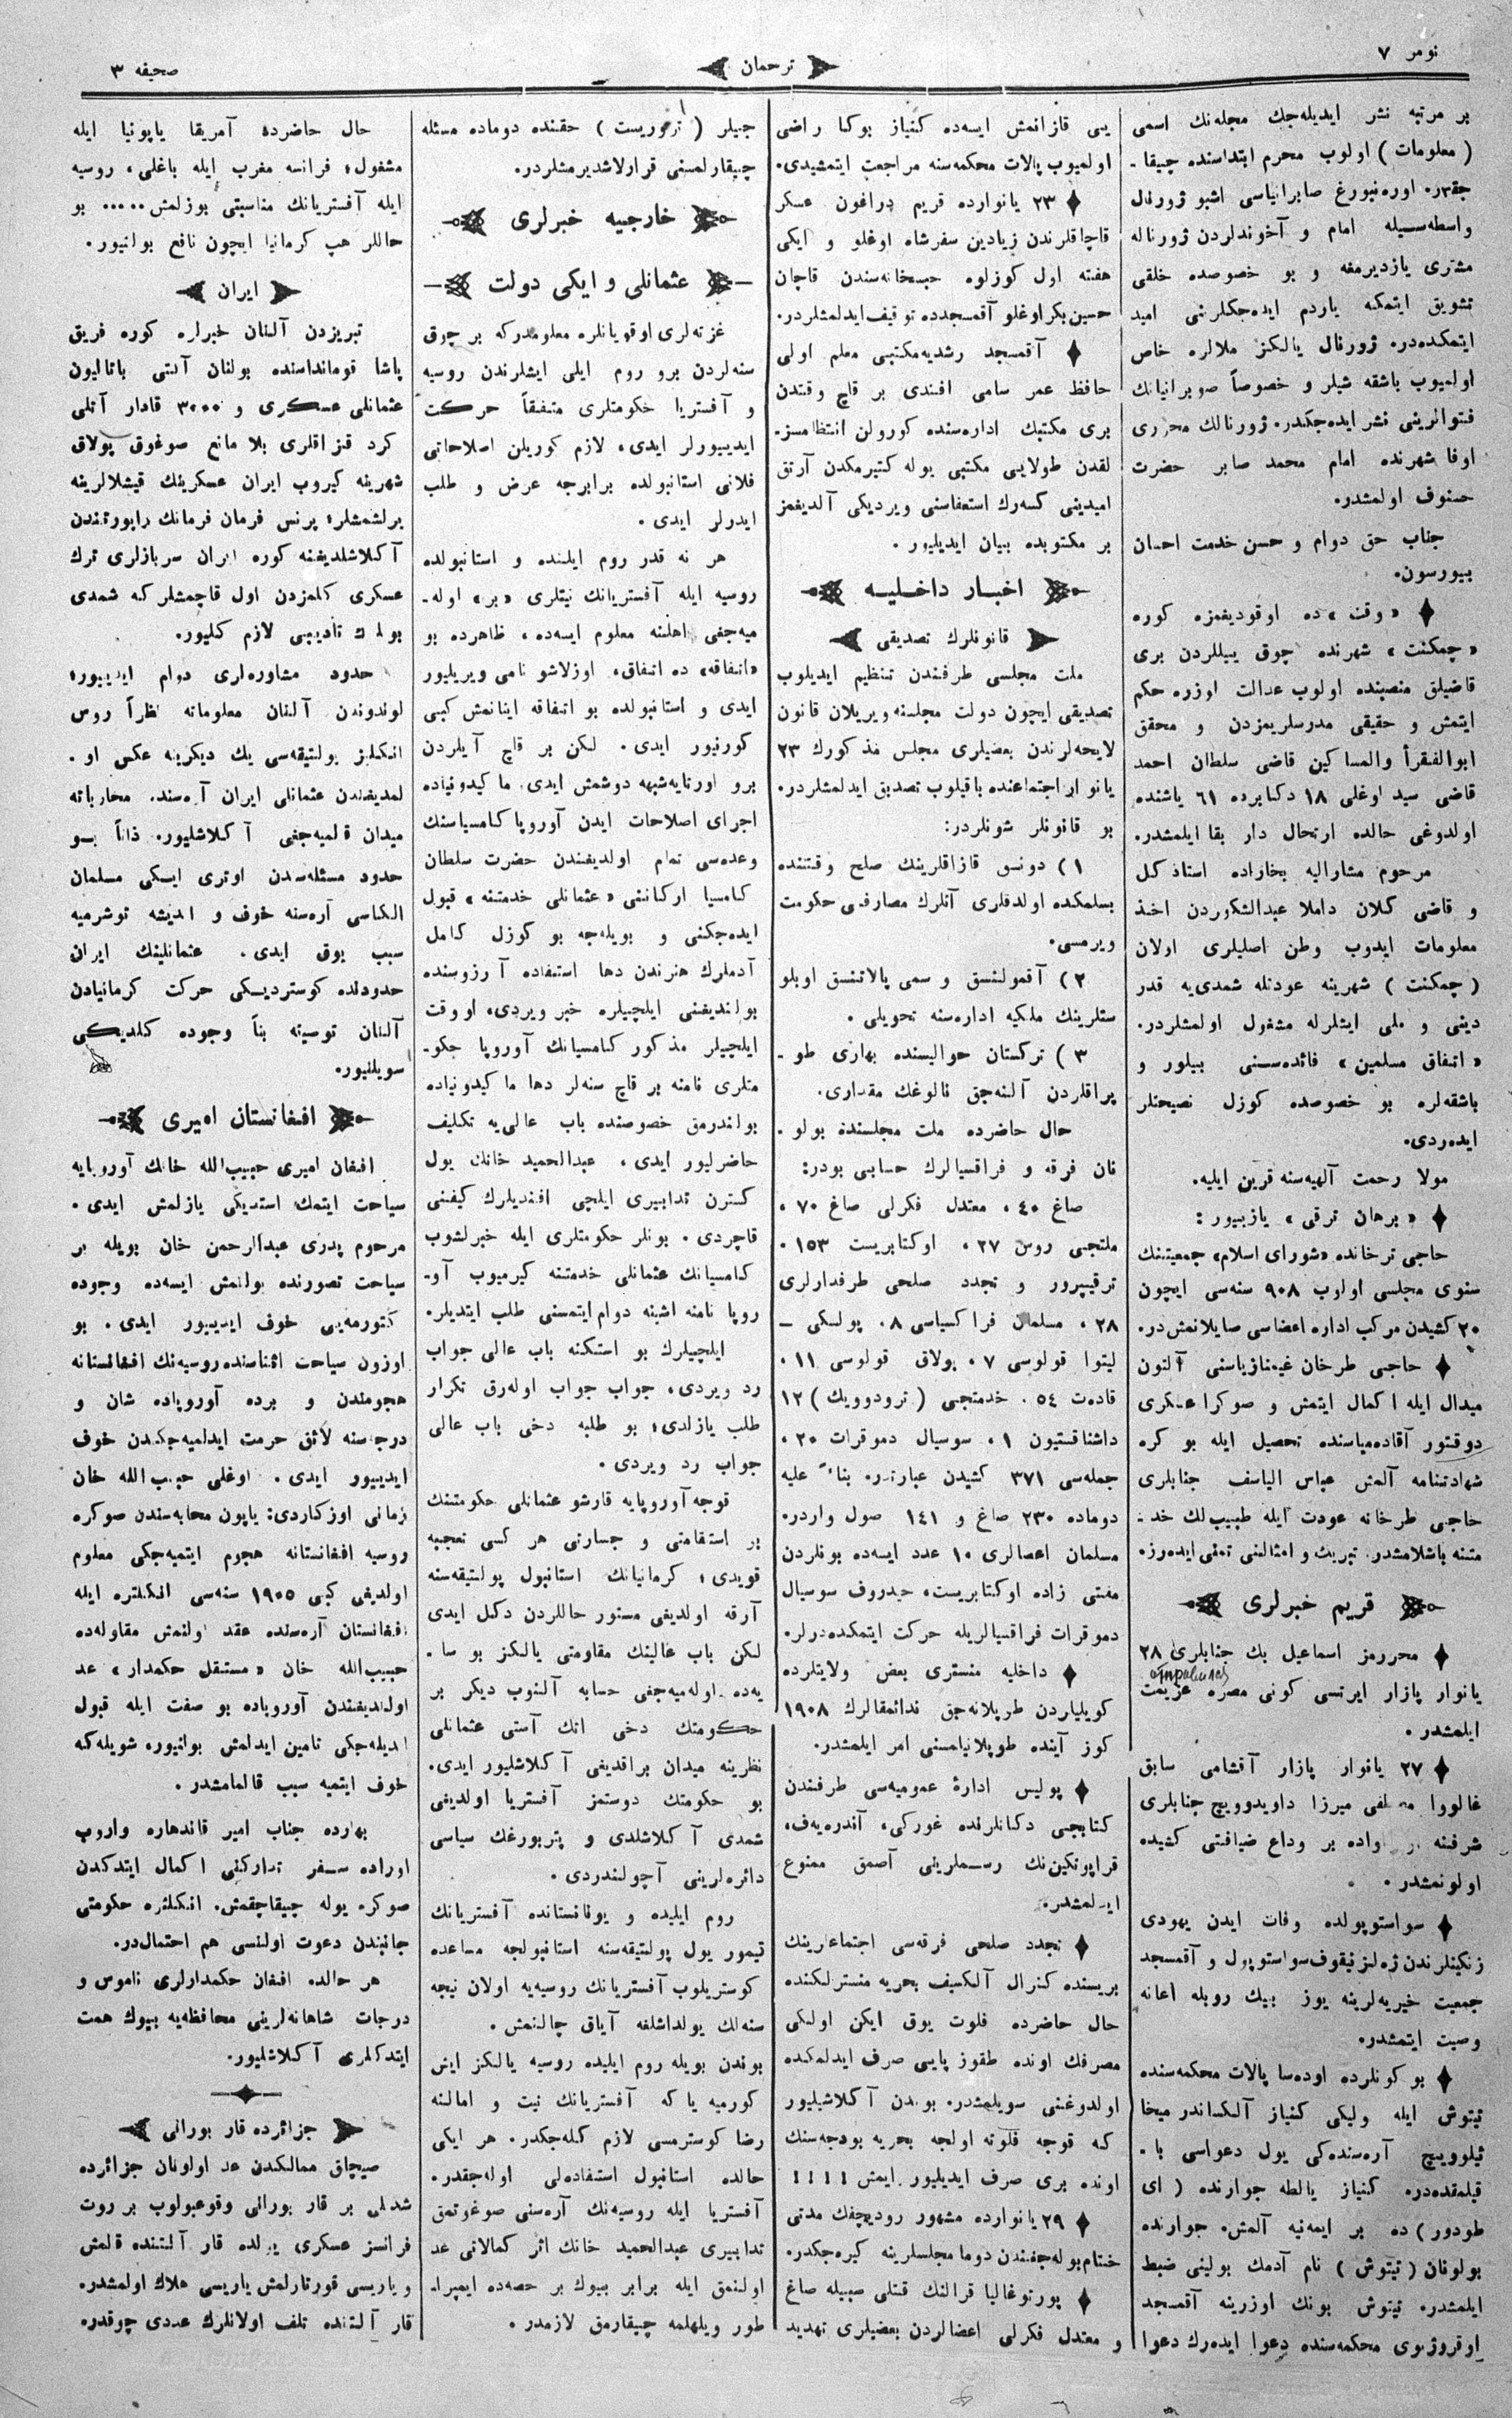 نومر ٧
ترجمان
صحيفه ٣
بر مرتبه نشر ايديله‌جك مجله‌نك اسمى
(معلومات) اولوب محرم ابتداسنده چيقا-
جقدر. اوره‌نبورغ صابرانياسى اشبو ژورنال
واسطه‌سيله امام و آخوندلردن ژورناله
مشترى يازديرمغه و بو خصوصده خلقى
تشويق ايتمكه ياردم ايده‌جكلرنى اميد
ايتمكده‌در. ژورنال يالكز ملالره خاص
اولميوب باشقه شيلر و خصوصاً صوبرانيانك
فتوالرينى نشر ايده‌جكدر. ژورنالك محررى
اوفا شهرنده امام محمد صابر حضرت
حسنوف اولمشدر.
جناب حق دوام و حسن خدمت احسان
بيورسون.
«وقت» ده اوقوديغمزه كوره
«چمكنت» شهرنده چوق ييللردن برى
قاضيلق منصبنده اولوب عدالت اوزره حكم
ايتمش و حقيقى مدرسلريمزدن و محقق
ابوالفقرأ والمساكين قاضى سلطان احمد
قاضى سيد اوغلى ١٨ دكابرده ٦١ ياشنده
اولدوغى حالده ارتحال دار بقا ايلمشدر.
مرحوم مشاراليه بخاراده استاذ كل
و قاضى كلان داملا عبدالشكوردن اخذ
معلومات ايدوب وطن اصليلرى اولان
(چمكنت) شهرينه عودتله شمدى‌يه قدر
دينى و ملى ايشلرله مشغول اولمشلردر.
«اتفاق مسلمين» فائده‌سنى بيلور و
باشقه‌لره بو خصوصده كوزل نصيحتلر
ايده‌ردى.
مولا رحمت آلهيه‌سنه قرين ايليه.
«برهان ترقى» يازييور:
حاجى ترخانده «شوراى اسلام» جمعيتنك
سنوى مجلسى اولوب ٩٠٨ سنه‌سى ايچون
٢٠ كشيدن مركب اداره اعضاسى صايلانمش‌در.
حاجى طرخان غيمنازياسنى آلتون
ميدال ايله اكمال ايتمش و صوكرا عسكرى
دوقتور آقاده‌مياسنده تحصيل ايله بو كره
شهادتنامه آلمش عباس الياسف جنابلرى
حاجى طرخانه عودت ايله طبيب‌لك خد-
متنه باشلامشدر. تبريك و امثالنى تمنى ايده‌رز.
قريم خبرلرى
محررمز اسماعيل بك جنابلرى ٢٨
يانوار پازار ايرتسى كونى مصره عزيمت
ايلمشدر.
٢٧ يانوار پازار آقشامى سابق
غالووا مصطفى ميرزا داويدوويچ جنابلرى
شرفنه بر وداع ضيافتى كشيده
اولونمشدر.
سواستوپولده وفات ايدن يهودى
زنكينلرندن سواستوپول و آقمسجد
جمعيت خيريه‌لرينه يوز بيك روبله اعانه
وصيت ايتمشدر.
بو كونلرده اوده‌سا پالات محكمه‌سنده
تيتوش ايله وليكى كنياز آلكساندر ميخا
ئيلوويچ آره‌سنده‌كى يول دعواسى با-
قيلمقده‌در. كنياز يالطه جوارنده (اى
طودور) ده بر ايمه‌نيه آلمش. جوارنده
بولونان (تيتوش) نام آدمك يولينى ضبط
ايلمشدر. تيتوش بونك اوزرينه آقمسجد
اوقروژنوى محكمه‌سنده دعوا ايده‌رك دعوا
يى قازانمش ايسه‌ده كنياز بوكا راضى
اولميوب پالات محكمه‌سنه مراجعت ايتمشيدى.
٢٣ يانوارده قريم دراغون عسكر
قاچاقلرندن زيادين سفرشاه اوغلو و ايكى
هفته اول كوزلوه حبسخانه‌سندن قاچان
حسين بكر اوغلو آقمسجدده توقيف ايدلمشلردر.
آقمسجد رشديه مكتبى معلم اولى
حافظ عمر سامى افندى بر قاچ وقتدن
برى مكتبك اداره‌سنده كورولن انتظامسز-
لقدن طولايى مكتبى يوله كتيرمكدن آرتق
اميدينى كسه‌رك استعفاسنى ويرديكى آلديغمز
بر مكتوبده بيان ايديليور.
اخبار داخليه
قانونلرك تصديقى
ملت مجلسى طرفندن تنظيم ايديلوب
تصديقى ايچون دولت مجلسنه ويريلان قانون
لايحه‌لرندن بعضيلرى مجلس مذكورك ٢٣
يانوار اجتماعنده باقيلوب تصديق ايدلمشلردر.
بو قانونلر شونلردر:
١) دونسق قازاقلرينك صلح وقتنده
بسلمكده اولدقلرى آتلرك مصارفى حكومت
ويرمسى.
٢) آقمولنسق و سمى پالاتنسق اوبلو
ستلرينك ملكيه اداره‌سنه تحويلى.
٣) تركستان حواليسنده بهارى طو-
پراقلردن آلنه‌جق نالوغك مقدارى.
حال حاضرده ملت مجلسنده بولو-
نان فرقه و فراقسيالرك حسابى بودر:
صاغ ٤٠، معتدل فكرلى صاغ ٧٠،
ملتجى روس ٢٧، اوكتابريست ١٥٣.
ترقيپرور و تجدد صلحى طرفدارلرى
٢٨، مسلمان فراكسياسى ٨، پولسكى -
ليتوا قولوسى ٧، پولاق قولوسى ١١،
قادەت ٥٤. خدمتجى (ترودوويك) ١٢
داشناقستيون ١، سوسيال دموقرات ٢٠،
جمله‌سى ٣٧١ كشيدن عبارتدر. بناءً عليه
دوماده ٢٣٠ صاغ و ١٤١ صول واردر.
مسلمان اعضالرى ١٠ عدد ايسه‌ده بونلردن
مفتى زاده اوكتابريست، حيدروف سوسيال
دموقرات فراقسيالريله حركت ايتمكده‌درلر.
داخليه منسترى بعض ولايتلرده
كويليلردن طوپلانه‌جق نداءمقالرك ١٩٠٨
كوز آينده طوپلانيلمسنى امر ايلمشدر.
پوليس ادارهٔ عموميه‌سى طرفندن
كتابجى دكانلرنده غوركى، آندره‌يه‌ف،
قراپوتكين‌نك رسملرينى آصمق ممنوع
ايدلمشدر.
تجدد صلحى فرقه‌سى اجتماعلرينك
بريسنده كنرال آلكسيف بحريه منسترلكنده
حال حاضرده فلوت يوق ايكن اولكى
مصرفك اونده طقوز پايى صرف ايدلمكده
اولدوغنى سويلمشدر. بوندن آكلاشيليور
كه قوجه فلوته اولجه بحريه بودجه‌سنك
اونده برى صرف ايديليور ايمش !!!!
٢٩ يانوارده مشهور روديچفك مدتى
ختام بوله‌جغندن دوما مجلسلرينه كيره‌جكدر.
پورتوغاليا قرالنك قتلى سببيله صاغ
و معتدل فكرلى اعضالردن بعضيلرى تهديد
جيلر (تروريست) حقنده دوماده مسئله
چيقارلمسنى قرارلاشديرمشلردر.
خارجيه خبرلرى
عثمانلى و ايكى دولت
غزته‌لرى اوقويانلره معلومدركه بر چوق
سنه‌لردن برو روم ايلى ايشلرندن روسيه
و آفستريا حكومتلرى متفقاً حركت
ايدييورلر ايدى، لازم كوريلن اصلاحاتى
فلانى استانبولده برابرجه عرض و طلب
ايدرلر ايدى.
هر نه قدر روم ايلنده و استانبولده
روسيه ايله آفستريانك نيتلرى «بر» اوله-
ميه‌جغى اهلنه معلوم ايسه‌ده، ظاهرده بو
«اتفاقه» ده اتفاق، اوزلاشو نامى ويريليور
ايدى و استانبولده بو اتفاقه اينانمش كبى
كورنيور ايدى. لكن بر قاچ آيلردن
برو اورتايه شبهه دوشمش ايدى. ماكيدونياده
اجراى اصلاحات ايدن آوروپا كامسياسنك
وعده‌سى تمام اولديغندن حضرت سلطان
كامسيا اركاننى «عثمانلى خدمتنه» قبول
ايده‌جكنى و بويله‌جه بو كوزل كامل
آدملرك هنرندن دها استفاده آرزوسنده
بولنديغنى ايلچيلره خبر ويردى، او وقت
ايلچيلر مذكور كامسيانك آوروپا حكو-
متلرى نامنه بر قاچ سنه‌لر دها ماكيدونياده
بولندرمق خصوصنده باب عالى‌يه تكليف
حاضرليور ايدى، عبدالحميد خانك يول
كسترن تدابيرى ايلچى افنديلرك كيفنى
قاچردى. بونلر حكومتلرى ايله خبرلشوب
كامسيانك عثمانلى خدمتنه كيرميوب آو-
روپا نامنه اشبنه دوام ايتمسنى طلب ايتديلر.
ايلچيلرك بو استكنه باب عالى جواب
رد ويردى، جواب جواب اوله‌رق تكرار
طلب يازلدى؛ بو طلبه دخى باب عالى
جواب رد ويردى.
قوجه آوروپايه قارشو عثمانلى حكومتنك
بو استقامتى و جسارتى هر كسى تعجبه
قويدى؛ كرمانيانك استانبول پولتيقه‌سنه
آرقه اولديغى مستور حاللردن دكل ايدى
لكن باب عالينك مقاومتى يالكز بو سا-
يه‌ده اوله‌ميه‌جغى حسابه آلنوب ديكر بر
حكومتك دخى انك آستى عثمانلى
نظرينه ميدان براقديغى آكلاشليور ايدى.
بو حكومتك دوستمز آفستريا اولديغى
شمدى آكلاشلدى و پتربورغك سياسى
دائره‌لرينى آچولندردى.
روم ايليده و يونانستانده آفستريانك
تيمور يول پولتيقه‌سنه استانبولجه مساعده
كوستريلوب آفستريانك روسيه‌يه اولان نيجه
سنه‌لك يولداشلغه آياق چالنمش.
بوندن بويله روم ايليده روسيه يالكز ايش
كورميه ياكه آفستريانك نيت و امالنه
رضا كوسترمسى لازم كله‌جكدر. هر ايكى
حالده استانبول استفاده‌لى اوله‌جقدر.
آفستريا ايله روسيه‌نك آره‌سنى صوغوتمق
تدابيرى عبدالحميد خانك اثر كمالاتى عد
اولنمق ايله برابر بيوك بر حصه‌ده ايمپرا-
طور ويلهلمه چيقارمق لازمدر.
حال حاضرده آمريقا ياپونيا ايله
مشغول؛ فرانسه مغرب ايله باغلى، روسيه
ايله آفستريانك مناسبتى بوزلمش..... بو
حاللر هپ كرمانيا ايچون نافع بولنيور.
ايران
تبريزدن آلنان خبرلره كوره فريق
پاشا قومانداسنده بولنان آلتى باتاليون
عثمانلى عسكرى و ٣٠٠٠ قادار آتلى
كرد قزاقلرى بلا مانع صوغوق پولاق
شهرينه كيروب ايران عسكرينك قيشلالرينه
يرلشمشلر؛ پرنس فرمان فرمانك راپورتندن
آكلاشلديغنه كوره ايران سربازلرى ترك
عسكرى كلمزدن اول قاچمشلر كه شمدى
بونلرك تأديبى لازم كليور.
حدود مشاوره‌لرى دوام ايدييور؛
لوندوندن آلنان معلوماته نظراً روس
انكليز پولتيقه‌سى يك ديكرينه عكس او-
لمديغندن عثمانلى ايران آره‌سنده محاربه‌يه
ميدان قلميه‌جغى آكلاشليور. ذاتاً بو
حدود مسئله‌سدن اوترى ايكى مسلمان
الكاسى آره‌سنه خوف و انديشه توشرميه
سبب يوق ايدى. عثمانلينك ايران
حدودلده كوسترديكى حركت كرمانيادن
آلنان توسيته بناً وجوده كلديكى
سويلنيور.
افغانستان اميرى
افغان اميرى حبيب‌الله خانك آوروپايه
سياحت ايتمك استديكى يازلمش ايدى.
مرحوم پدرى عبدالرحمن خان بويله بر
سياحت تصورنده بولنمش ايسه‌ده وجوده
كتورمه‌يى خوف ايدييور ايدى. بو
اوزون سياحت اثناسنده روسيه‌نك افغانستانه
هجومندن و برده آوروپاده شان و
درجه‌سنه لائق حرمت ايدلميه‌جكندن خوف
ايدييور ايدى. اوغلى حبيب‌الله خان
زمانى اوزكاردى: ياپون محابه‌سندن صوكره
روسيه افغانستانه هجوم ايتميه‌جكى معلوم
اولديغى كبى ١٩٠٥ سنه‌سى انكلتره ايله
افغانستان آره‌سنده عقد اولنمش مقاوله‌ده
حبيب‌الله خان «مستقل حكمدار» عد
اولنديغندن آوروپاده بو صفت ايله قبول
ايديله‌جكى تامين ايدلمش بولنيور، شويله‌كه
خوف ايتميه سبب قالمامشدر.
بهارده جناب امير قاندهاره واروپ
اوراده سفر تداركنى اكمال ايتدكدن
صوكره يوله چيقاجقمش. انكلتره حكومتى
جانبندن دعوت اولنسى هم احتمال‌در.
هر حالده افغان حكمدارلرى ناموس و
درجات شاهانه‌لرينى محافظه‌يه بيوك همت
ايتدكلرى آكلاشليور.
جزائرده قار بورانى
صيجاق ممالكدن عد اولونان جزائرده
شدتلى بر قار بورانى وقوعبولوب بر روت
فرانسز عسكرى يولده قار آلتنده قلمش
و ياريسى قورتارلمش ياريسى هلاك اولمشدر.
قار آلتنده تلف اولانلرك عددى چوقدر.